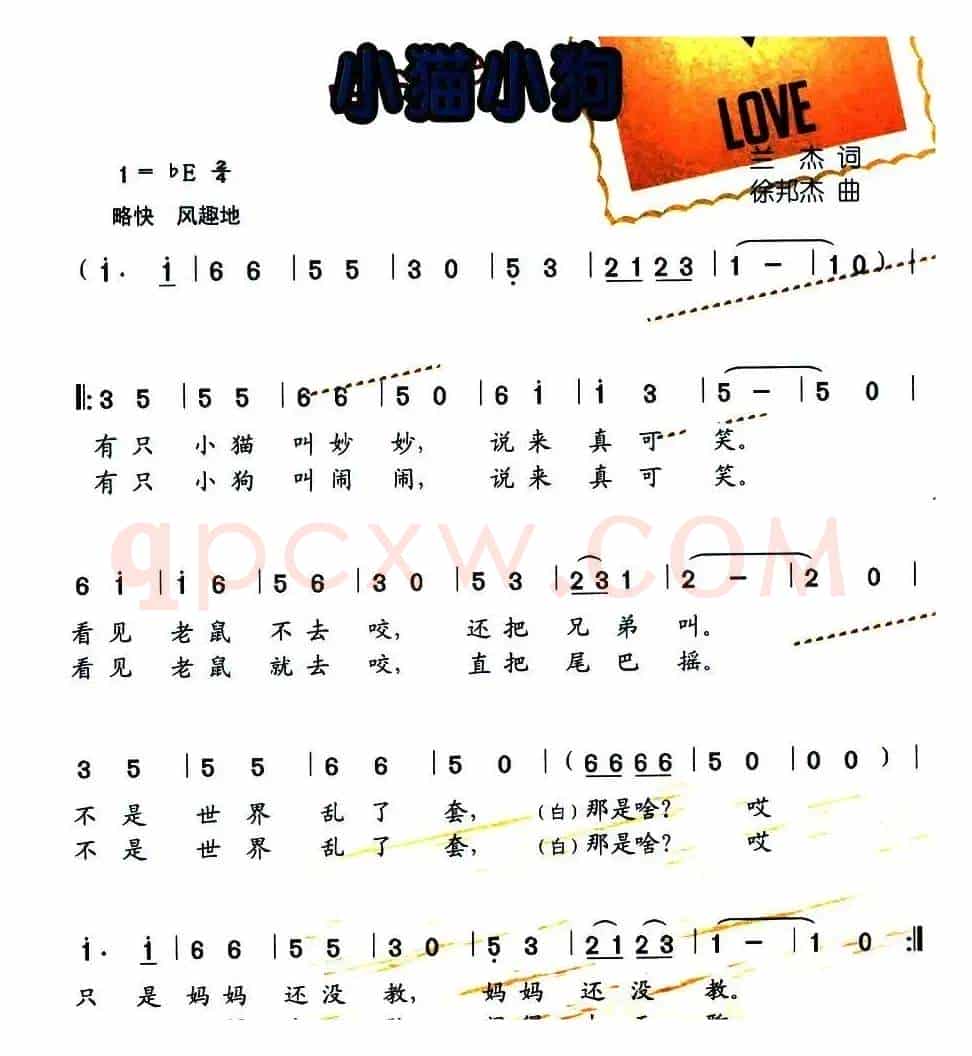 小猫小狗
LOVE
兰 杰 词
徐邦杰 曲
1 = ♭E 2/4
略快 风趣地
( i· i | 6 6 | 5 5 | 3 0 | 5̣ 3 | 2 1 2 3 | 1 — | 1 0 ) |
‖: 3 5 | 5 5 | 6 6 | 5 0 | 6 i | i 3 | 5 — | 5 0 |
有只 小猫 叫妙 妙， 说来 真可 笑。
有只 小狗 叫闹 闹， 说来 真可 笑。
qpcxw.COM
6 i | i 6 | 5 6 | 3 0 | 5 3 | 2 3 1 | 2 — | 2 0 |
看见 老鼠 不去 咬， 还把 兄弟 叫。
看见 老鼠 就去 咬， 直把 尾巴 摇。
3 5 | 5 5 | 6 6 | 5 0 | ( 6 6 6 6 | 5 0 | 0 0 ) |
不是 世界 乱了 套， （白）那是啥？ 哎
不是 世界 乱了 套， （白）那是啥？ 哎
i· i | 6 6 | 5 5 | 3 0 | 5̣ 3 | 2 1 2 3 | 1 — | 1 0 :‖
只是 妈妈 还没 教， 妈妈 还没 教。